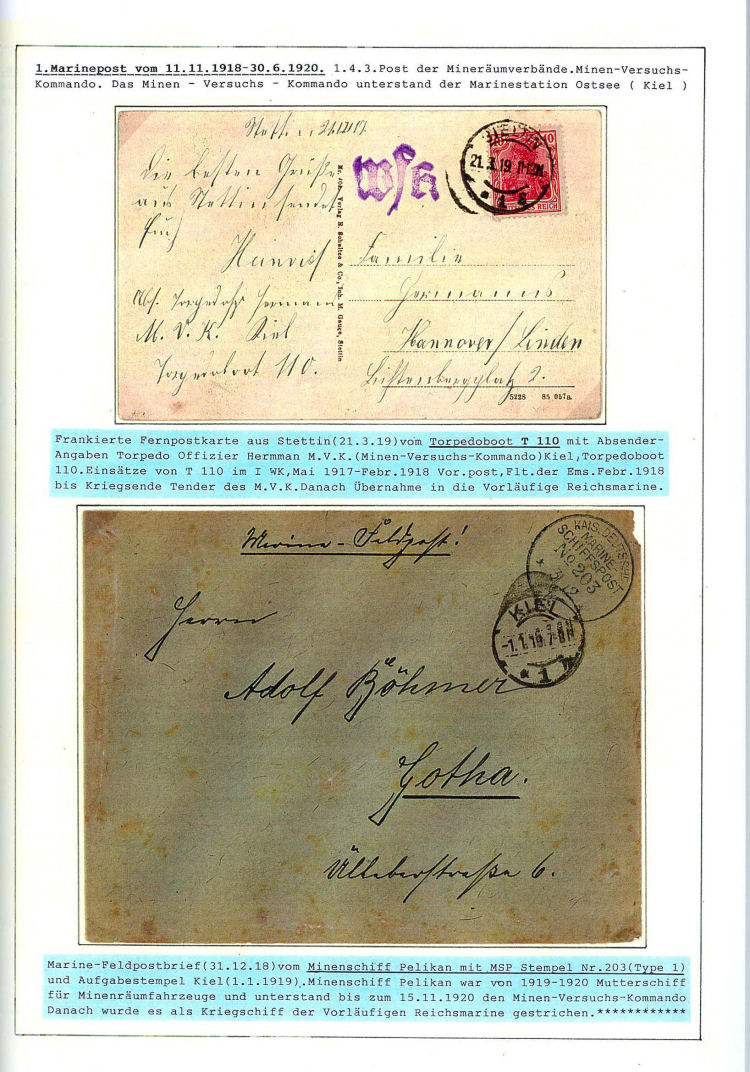 1.Marinepost vom 11.11.1918-30.6.1920. 1.4.3.Post der Mineräumverbände.Minen-Versuchs-
Kommando. Das Minen - Versuchs - Kommando unterstand der Marinestation Ostsee ( Kiel )
Stettin
STETTIN
21.3.19.
10 10
DEUTSCHES REICH
Die besten Grüße
aus Stettin sendet
Euch
Heinrich
Familie
Hermanns
Hannover/Linden
Lichtenbergplatz 2.
Abs.
M. V. K. Kiel
Torpedoboot 110.
Verlag R. Schultze & Co., Inh. M. Gauge, Stettin
5228 85 057a.
Frankierte Fernpostkarte aus Stettin(21.3.19)vom Torpedoboot T 110 mit Absender-
Angaben Torpedo Offizier Hermman M.V.K.(Minen-Versuchs-Kommando)Kiel,Torpedoboot
110.Einsätze von T 110 im I WK,Mai 1917-Febr.1918 Vor.post,Flt.der Ems.Febr.1918
bis Kriegsende Tender des M.V.K.Danach Übernahme in die Vorläufige Reichsmarine.
Marine-Feldpost!
KAIS. DEUTSCHE
MARINE-
SCHIFFSPOST
No 203
31 12
KIEL
-1.1.19.7-8N
* 1
Herrn
Adolf Böhmer
Gotha.
Ülleberstraße 6.
Marine-Feldpostbrief(31.12.18)vom Minenschiff Pelikan mit MSP Stempel Nr.203(Type 1)
und Aufgabestempel Kiel(1.1.1919).Minenschiff Pelikan war von 1919-1920 Mutterschiff
für Minenräumfahrzeuge und unterstand bis zum 15.11.1920 den Minen-Versuchs-Kommando
Danach wurde es als Kriegschiff der Vorläufigen Reichsmarine gestrichen.************